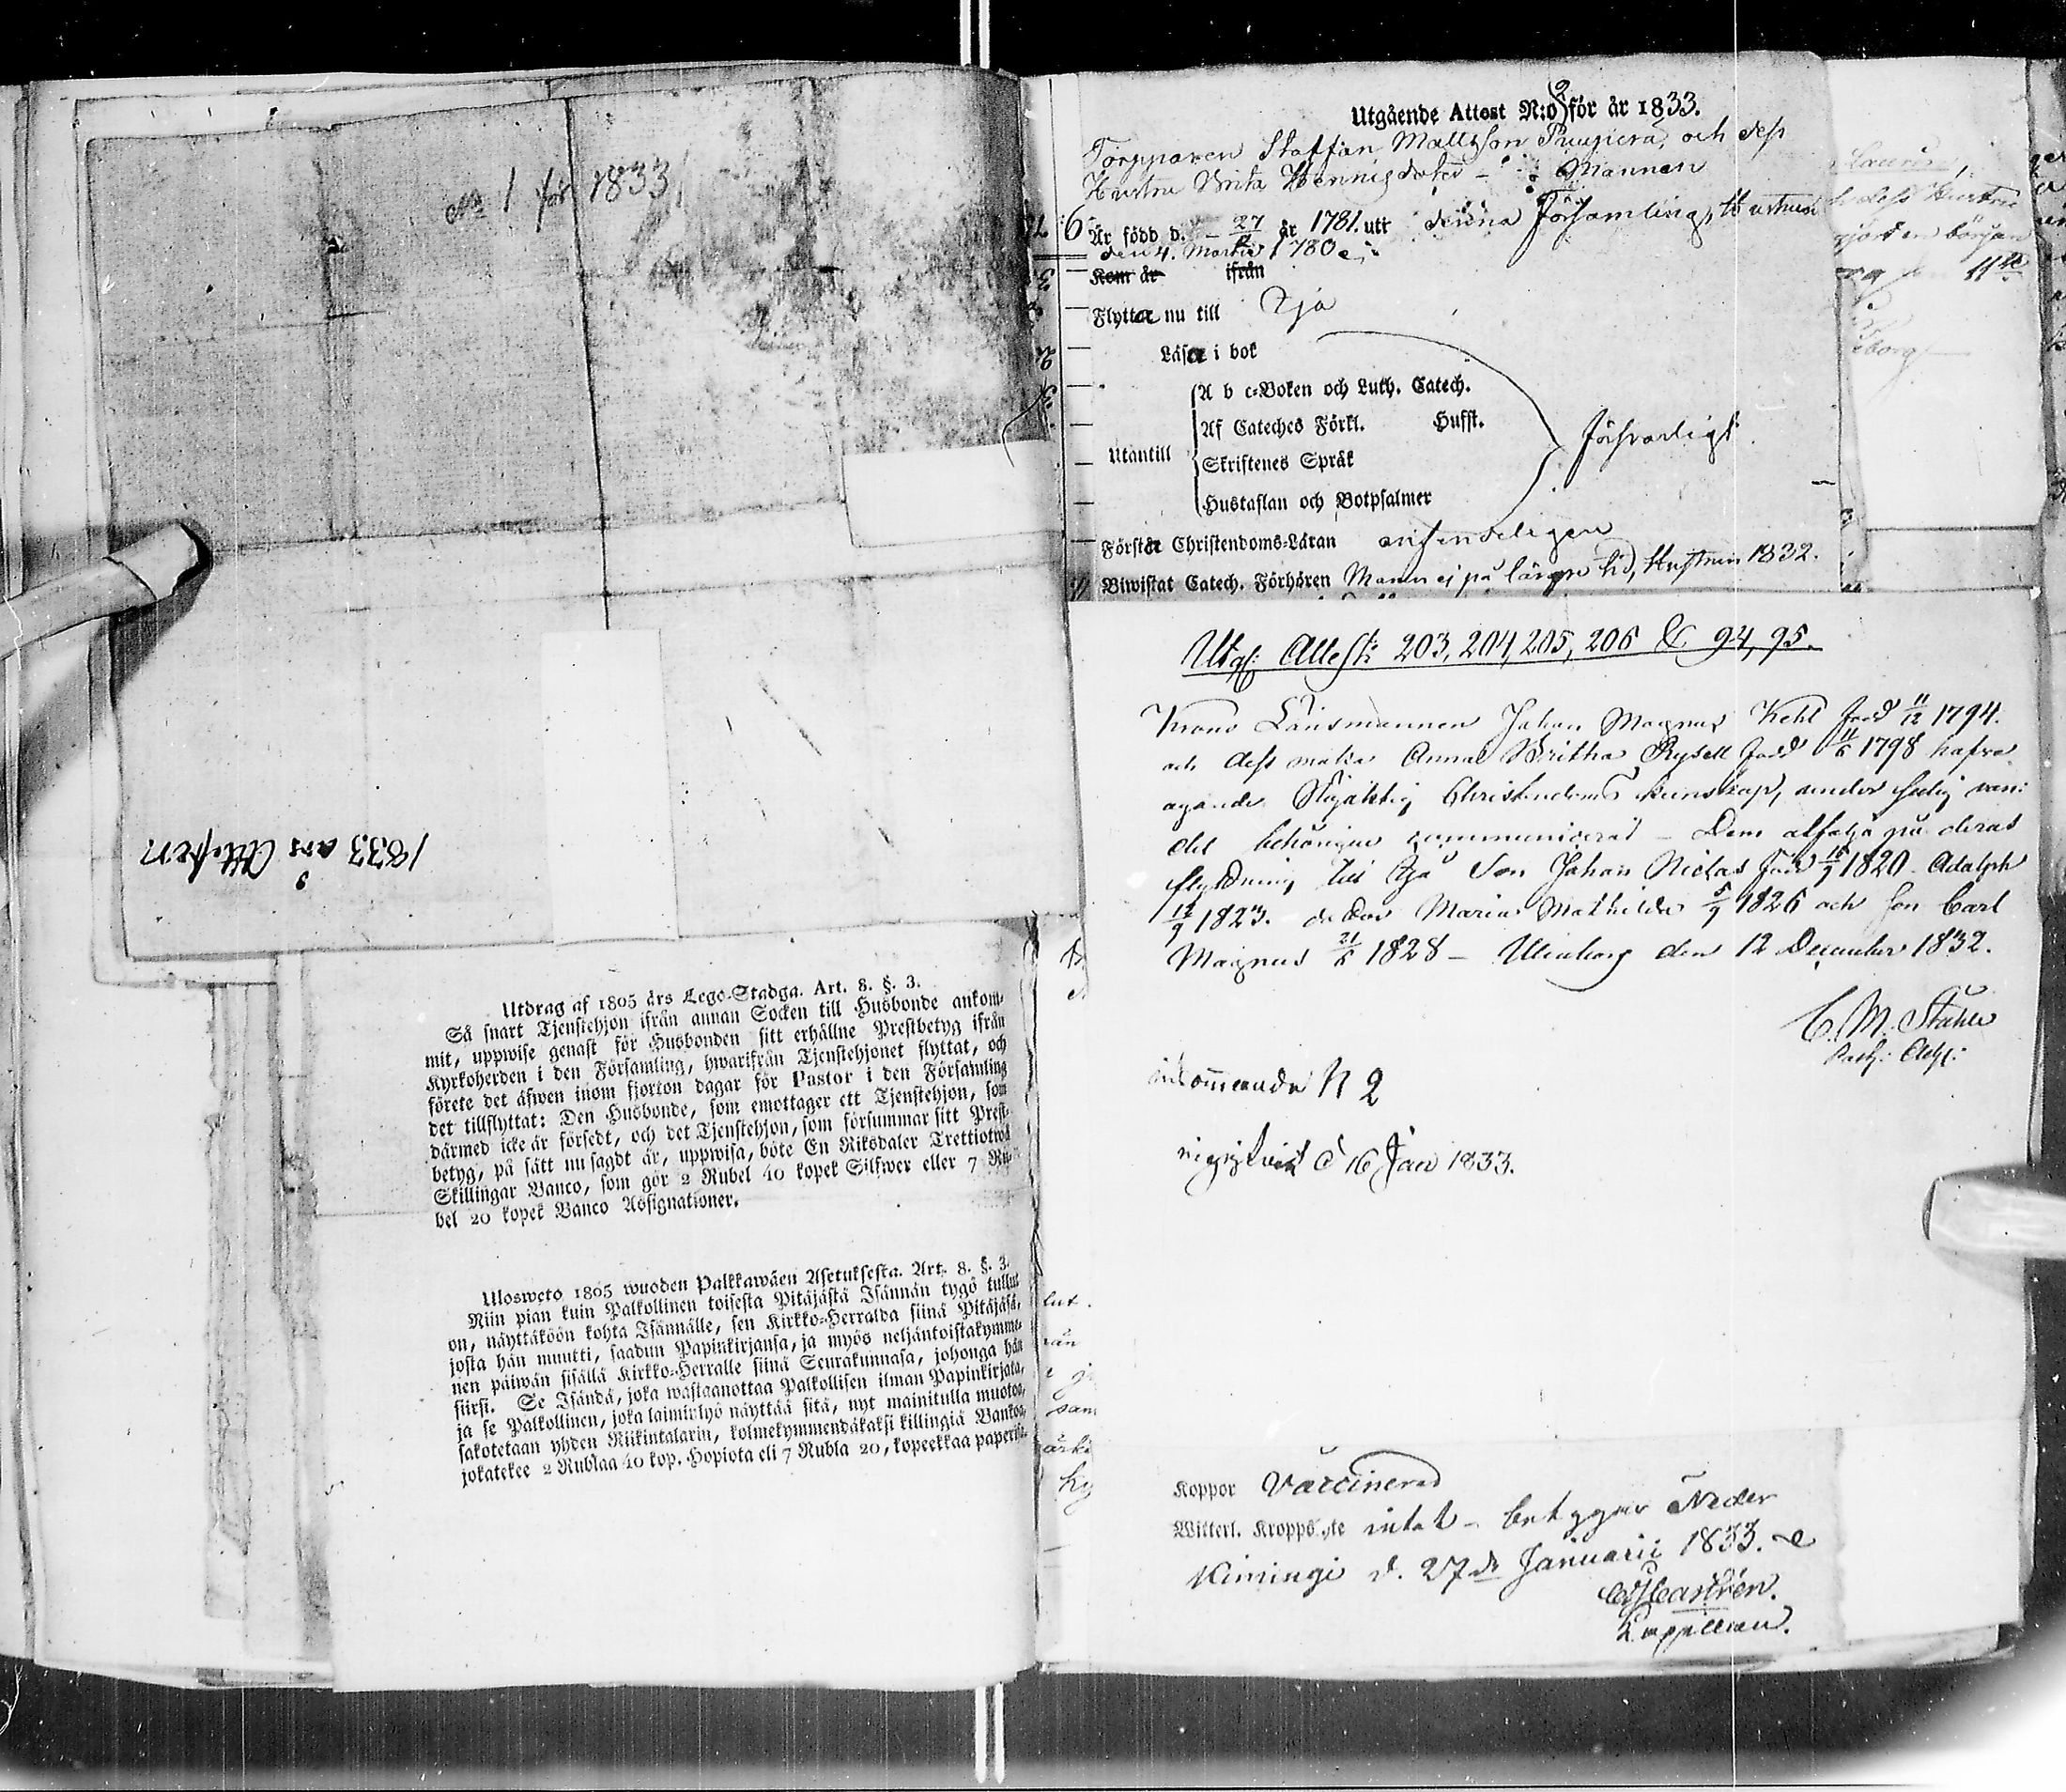 No 1 för 1833
1833 års Attester
Utdrag af 1805 års Lego-Stadga. Art. 8. §. 3.
Så snart Tjenstehjon ifrån annan Socken till Husbonde ankom-
mit, uppwise genast för Husbonden sitt erhållne Prestbetyg ifrån
Kyrkoherden i den Församling, hwarifrån Tjenstehjonet flyttat, och
förete det äfwen inom fjorton dagar för Pastor i den Församling
det tillflyttat: Den Husbonde, som emottager ett Tjenstehjon, som
därmed icke är försedt, och det Tjenstehjon, som försummar sitt Prest-
betyg, på sätt nu sagdt är, uppwisa, böte En Riksdaler Trettiotwå
Skillingar Banco, som gör 2 Rubel 40 kopek Silfwer eller 7 Ru-
bel 20 kopek Banco Assignationer.
Ulosweto 1805 wuoden Palkkawäen Asetuksesta. Art. 8. §. 3.
Niin pian kuin Palkollinen toisesta Pitäjästä Isännän tygö tullut
on, näyttäköön kohta Isännälle, sen Kirkko-Herralda siinä Pitäjäsä,
josta hän muutti, saadun Papinkirjansa, ja myös neljäntoistakymme-
nen päiwän sisällä Kirkko-Herralle siinä Seurakunnasa, johonga hän
siirsi. Se Isändä, joka wastaanottaa Palkollisen ilman Papinkirjata,
ja se Palkollinen, joka laiminlyö näyttää sitä, nyt mainitulla muotoa,
sakotetaan yhden Riikintalarin, kolmekymmendäkaksi killingiä Bankoa,
jokatekee 2 Rublaa 40 kop. Hopiota eli 7 Rubla 20, kopeekkaa paperisa.
Utgående Attest N:o 2 för år 1833.
Torpparen Staffan Mattsson och dess
Hustru Brita Hennigsdoter - Mannen
Är född d. 27 år 1781. utt denna Församling, Hustrun
den 4. Martii 1780
Kom år ifrån
Flytta nu till Ijo
Läsa i bok
Utantill
A b c-Boken och Luth. Catech.
Af Cateches Förkl. Hufst.
Skriftenes Språk
Hustaflan och Botpsalmer
försvarligt
Förstår Christendoms-Läran ansenteligen
Biwistat Catech. Förhören Mannen ej på längre tid, Hustrun 1832.
Utgf: Attest: 203, 204, 205, 206 & 94, 95.
Krono Länsmannen Johan Magnus Kehl född 11/12 1794.
och dess maka Anna Britha Rysell född 11/6 1798 hafva
ägande Christendoms kunskap,
det behörigen communicerat - Dem åtfölja på deras
flyttning till Ijo Son Johan Niclas född 15/9 1820 Adolph
12/9 1823. dotter Maria Mathilda 5/9 1826 och son Carl
Magnus 21/6 1828 - Uleaborg den 12 December 1832.
C. M. Ståhle
Past: Adj:
inkommande N 2
registrerat d 16 Jan 1833.
Koppor Vaccinerad
Witterl. Kropps lyte intet - betygar Neder
Kiimingi d. 27de Januarii 1833.
Castrén.
Kapellan.